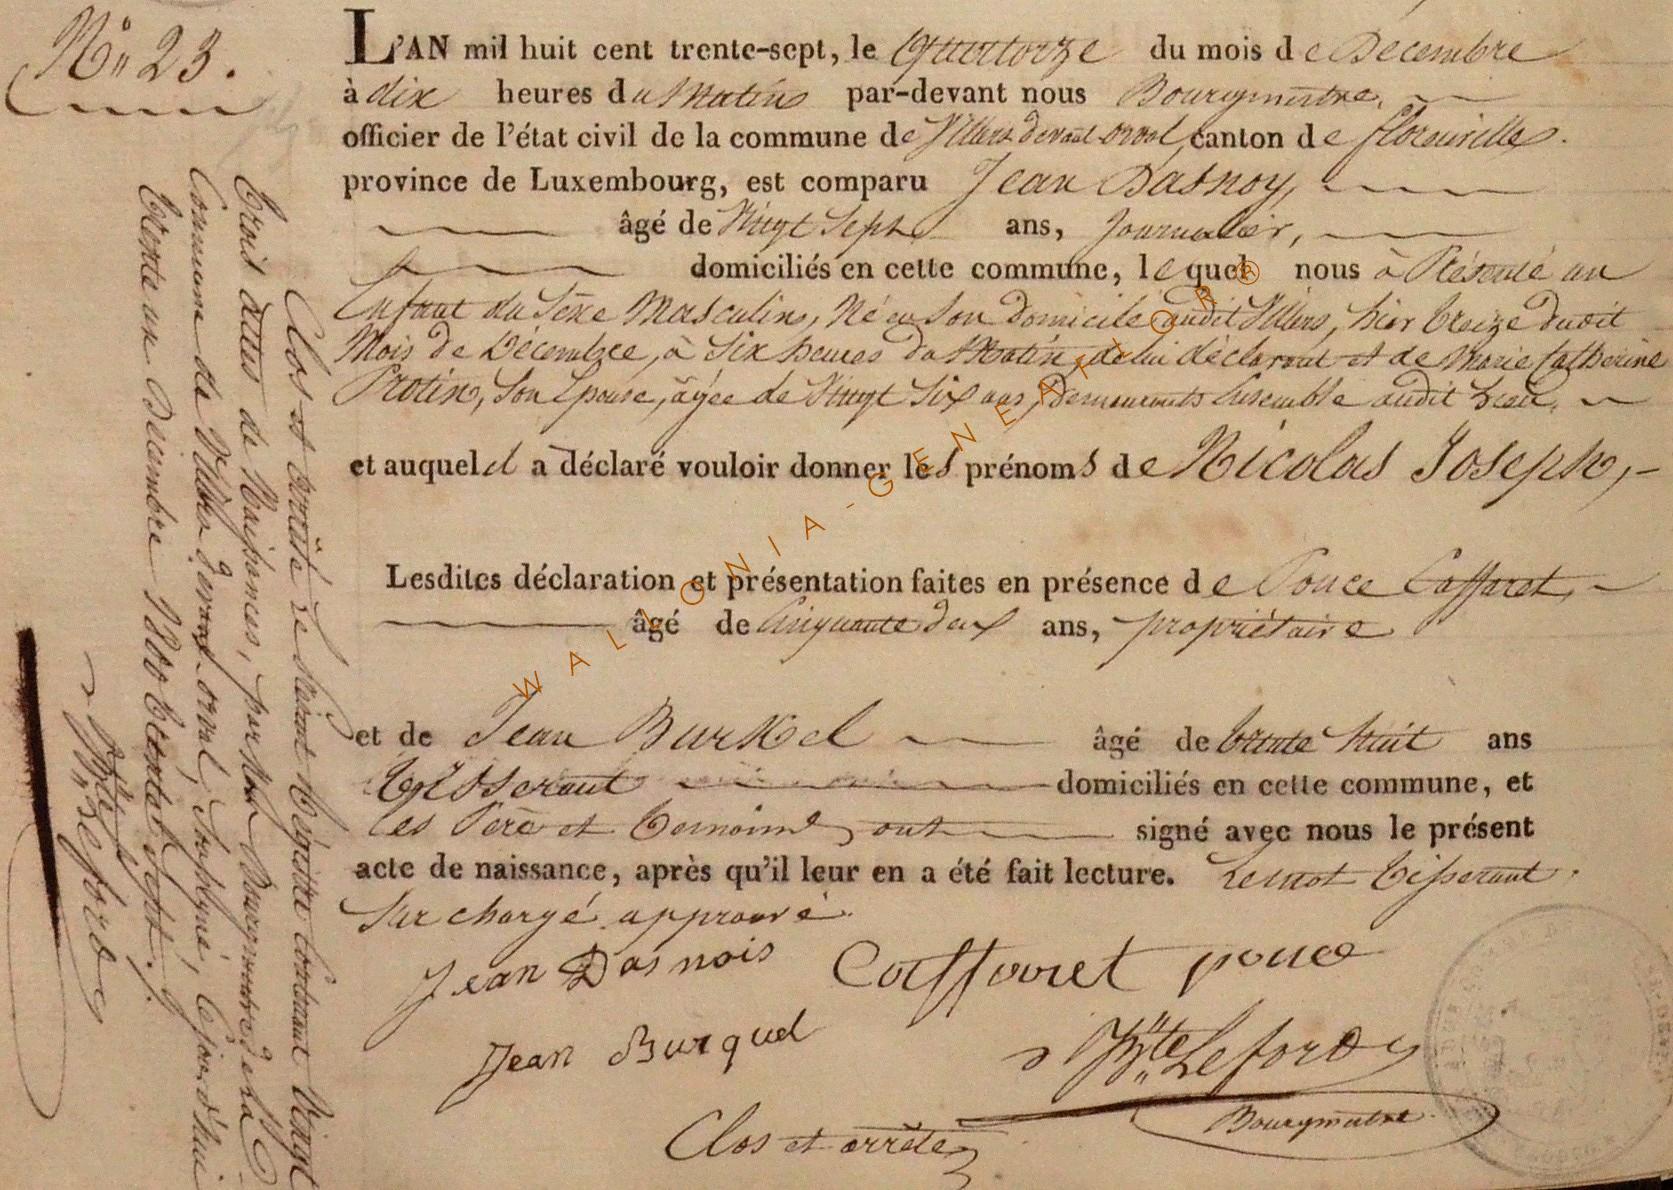 N° 23.
L'AN mil huit cent trente-sept, le Quatorze du mois de Décembre
à dix heures du Matin par-devant nous Bourgmestre,
officier de l'état civil de la commune de Villers devant orval canton de florenville.
province de Luxembourg, est comparu Jean Dasnoy,
âgé de Vingt Sept ans, Journalier,
domiciliés en cette commune, lequel nous à Présenté un
Enfant du Sexe Masculin, Né en Son Domicile audit Villers, hier treize dudit
Mois de Décembre, à Six heures du Matin, de lui déclarant et de Marie Catherine
Protin, Son Epouse, âgée de Vingt Six ans, Demeurants Ensemble audit Lieu,
et auquel il a déclaré vouloir donner les prénoms de Nicolas Joseph,
Lesdites déclaration et présentation faites en présence de Ponce Caffaret,
âgé de Cinquante deux ans, propriétaire
et de Jean Burkel âgé de trente huit ans
Tisserant domiciliés en cette commune, et
les Père et Temoins, ont signé avec nous le présent
acte de naissance, après qu'il leur en a été fait lecture. Le mot Tisserant
Sur chargé approuvé.
Jean Dasnois Caffaret ponce
Jean Burquel
Hte Lefort
Bourgmestre
Clos et arrêté
Clos et arrêté le Présent Régistre Contenant Vingt
trois actes de Naissances, par Nous Bourgmestre de la
Commune de Villers devant orval, Soussigné, Cejourd'hui
trente un Décembre 1800 trente Sept.
Hte Lefort
WALLONIA-GENEAFLOR®